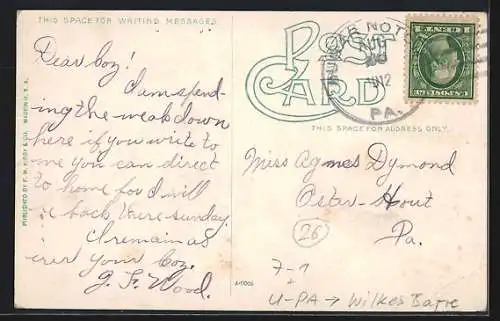 THIS SPACE FOR WRITING MESSAGES
POST
CARD
THIS SPACE FOR ADDRESS ONLY.
Dear Coz!
I am spend-
ing the week down
here if you write to
me you can direct
to home for I will
be back there sunday.
I remain as
ever your Coz.
J. F. Wood.
Miss Agnes Dymond
Oster-Hout
Pa.
26
7-1
U-PA → Wilkes Barre
A-0006
NOT
AUG
1912
PA.